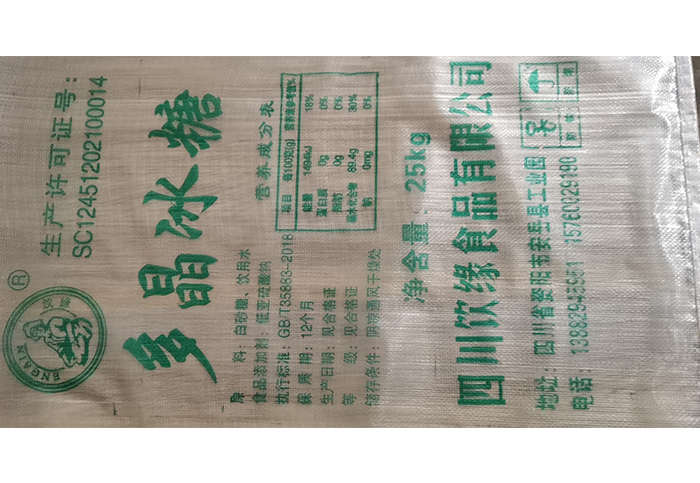 生产许可证号:
SC12451202100014
®
多晶冰糖
原 料: 白砂糖、饮用水
食品添加剂: 低亚硫酸钠
执行标准: GB/T35883-2018
保 质 期: 12个月
生产日期: 见合格证
等 级: 见合格证
储存条件: 阴凉通风干燥处
营养成分表
项目 每100克(g) 营养素参考值%
能量 1494kJ 18%
蛋白质 0g 0%
脂肪 0g 0%
碳水化合物 89.4g 30%
钠 0mg 0%
净含量: 25kg
四川饮缘食品有限公司
地址: 四川省资阳市安岳县工业园
电话: 13882945951 15760029190